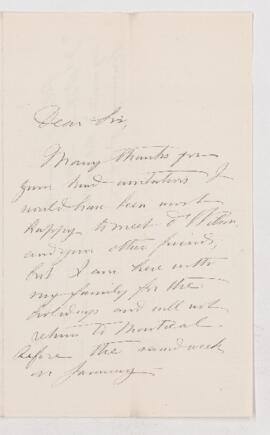 Dear Sir,
Many thanks for
your kind invitation I
would have been most
happy to meet Dr
and your other friends,
but I am here with
my family for the
holidays and will not
return to Montreal
before the second week
in January